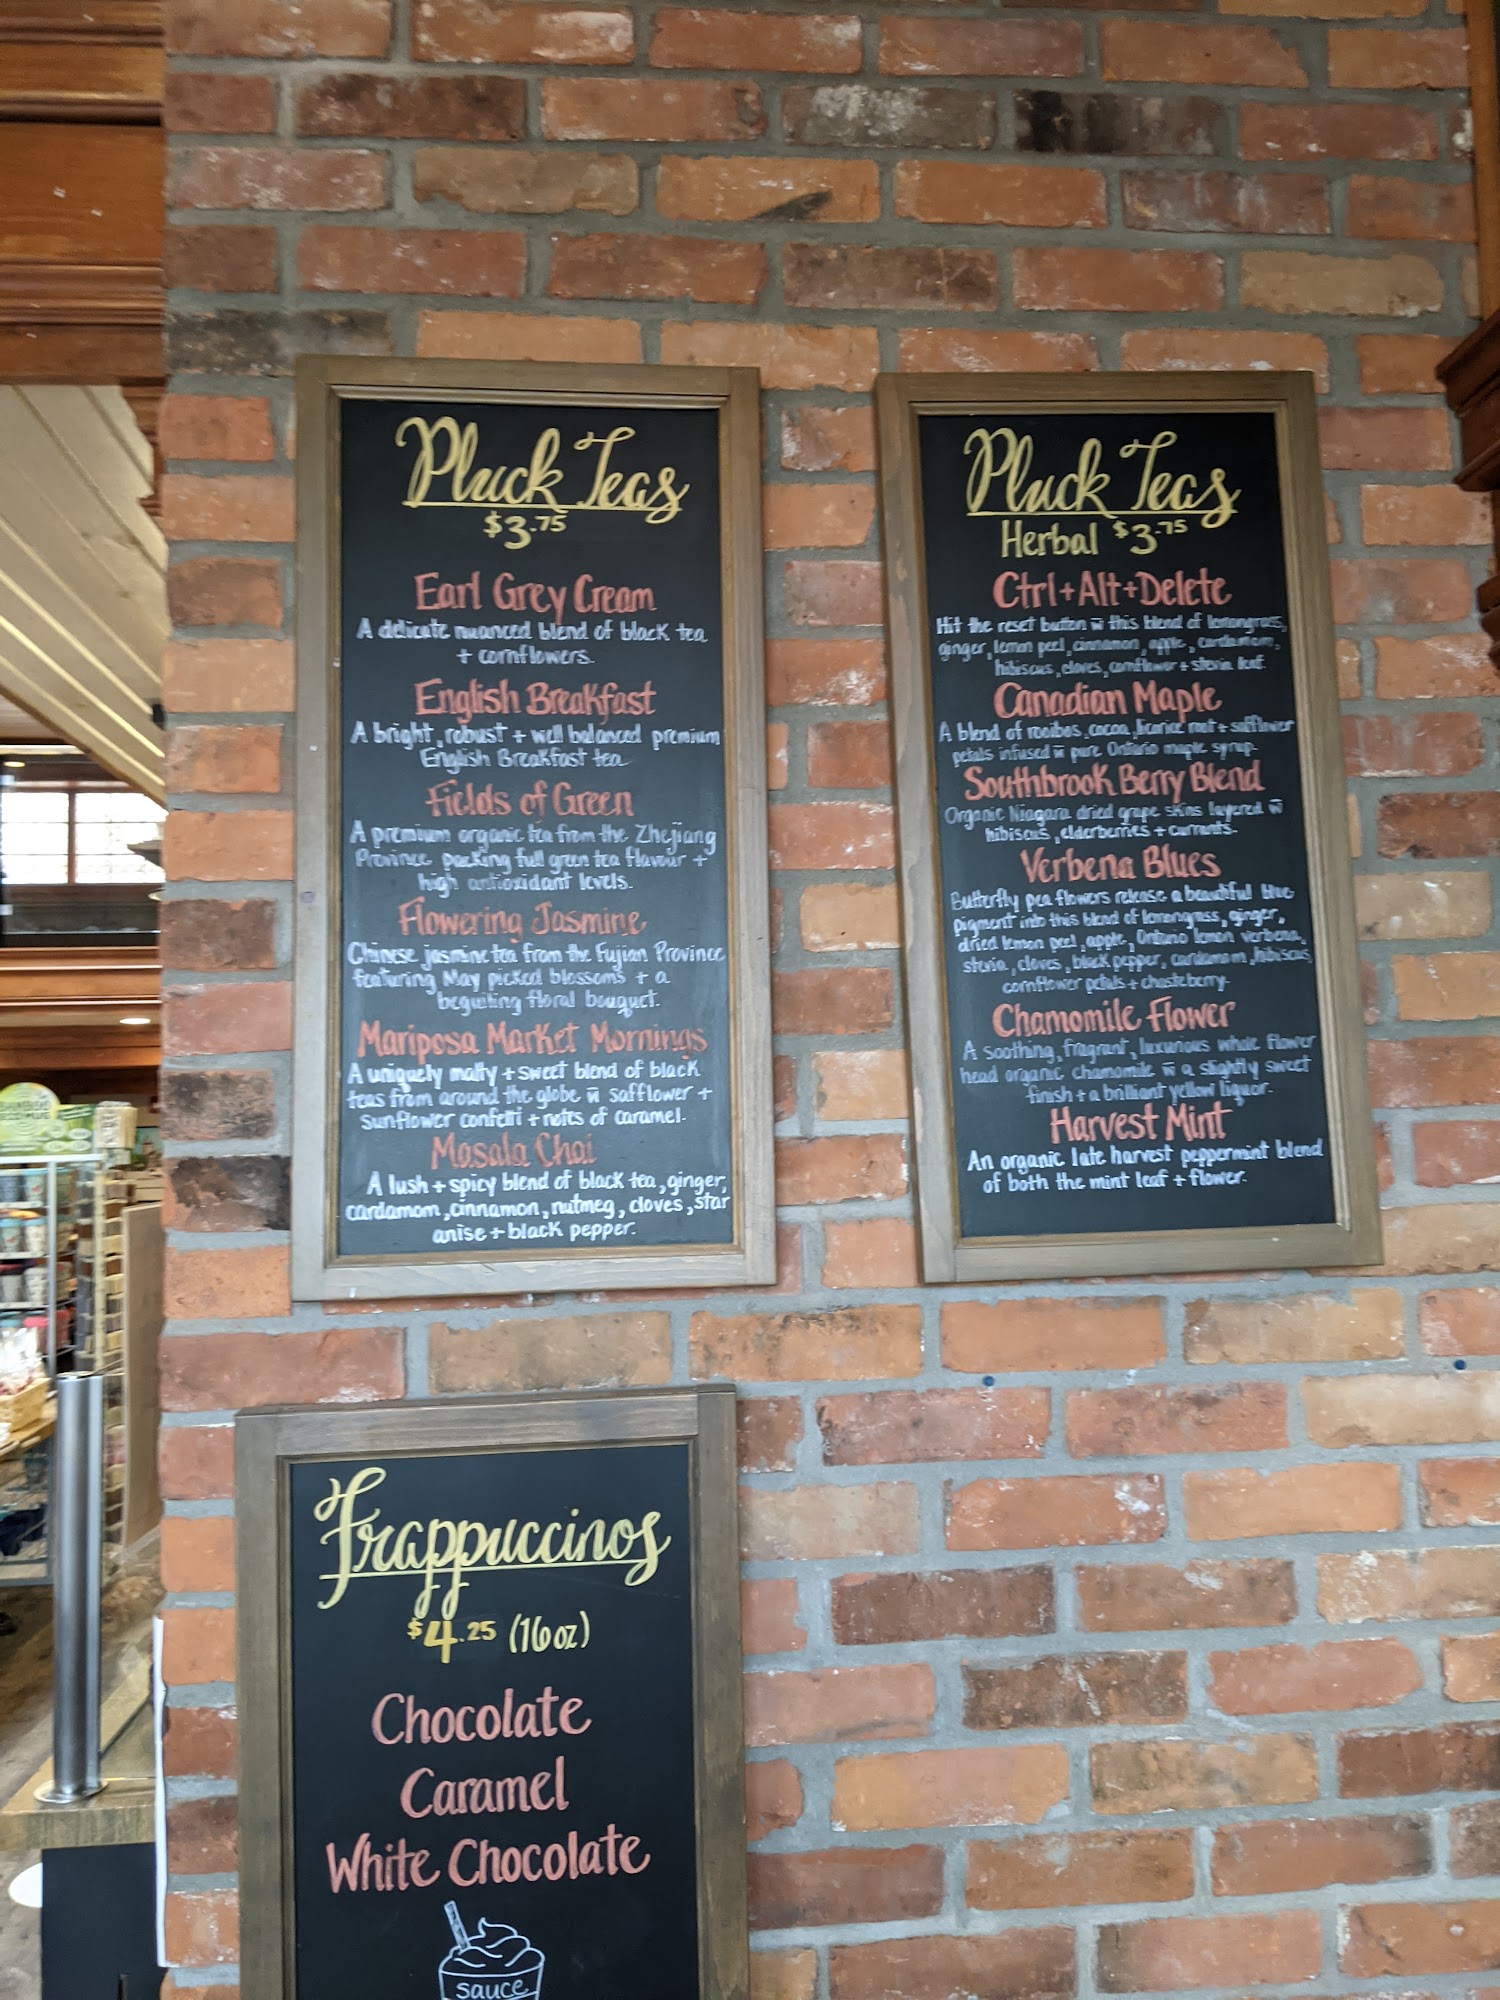 Pluck Teas
$3.75
Earl Grey Cream
A delicate nuanced blend of black tea
+ cornflowers.
English Breakfast
A bright, robust + well balanced premium
English Breakfast tea
Fields of Green
A premium organic tea from the Zhejiang
Province packing full green tea flavour +
high antioxidant levels.
Flowering Jasmine
Chinese jasmine tea from the Fujian Province
featuring May picked blossoms + a
beguiling floral bouquet.
Mariposa Market Mornings
A uniquely malty + sweet blend of black
teas from around the globe w̅ safflower +
sunflower confetti + notes of caramel.
Masala Chai
A lush + spicy blend of black tea, ginger,
cardamom, cinnamon, nutmeg, cloves, star
anise + black pepper.
Pluck Teas
Herbal $3.75
Ctrl+Alt+Delete
Hit the reset button w̅ this blend of lemongrass,
ginger, lemon peel, cinnamon, apple, cardamom,
hibiscus, cloves, cornflower + stevia leaf.
Canadian Maple
A blend of rooibos, cocoa, licorice root + safflower
petals infused w̅ pure Ontario maple syrup.
Southbrook Berry Blend
Organic Niagara dried grape skins layered w̅
hibiscus, elderberries + currants.
Verbena Blues
Butterfly pea flowers release a beautiful blue
pigment into this blend of lemongrass, ginger,
dried lemon peel, apple, Ontario lemon verbena,
stevia, cloves, black pepper, cardamom, hibiscus,
cornflower petals + chasteberry.
Chamomile Flower
A soothing, fragrant, luxurious whole flower
head organic chamomile w̅ a slightly sweet
finish + a brilliant yellow liquor.
Harvest Mint
An organic late harvest peppermint blend
of both the mint leaf + flower.
Frappuccinos
$4.25 (16oz)
Chocolate
Caramel
White Chocolate
sauce